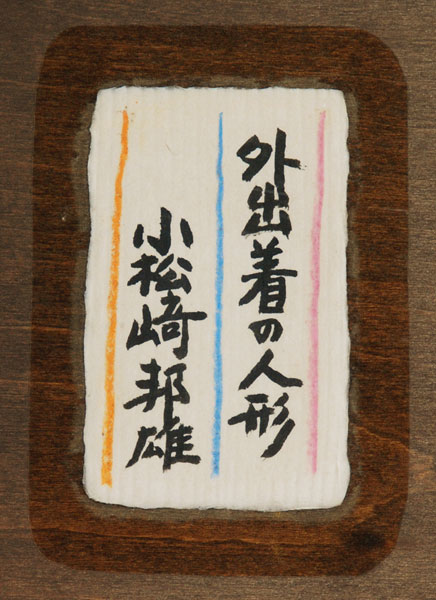 外出着の人形
小松崎邦雄